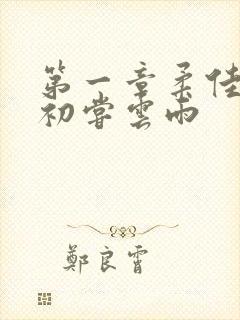 第一章柔佳
初嘗雲雨
鄭良霄